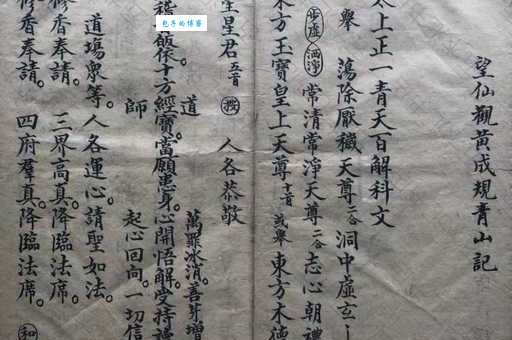 望仙觀黃成規青山記
太上正一青天百解科文
舉 蕩除厭穢天尊二合 洞中虛玄
步虛 洒淨 常清常淨天尊二合 志心朝禮
東方玉寶皇上天尊十言 或舉 東方木德
星君五言 人各恭敬
道 萬罪冰消。善芽增
皈依十方經寶。當願患身。心開悟解。受持
師 起心回向。一切信
包子的博客
道場衆等。人各運心。請聖如法。
修香奉請。三界高真。降臨法席。
修香奉請。四府羣真。降臨法席。 和